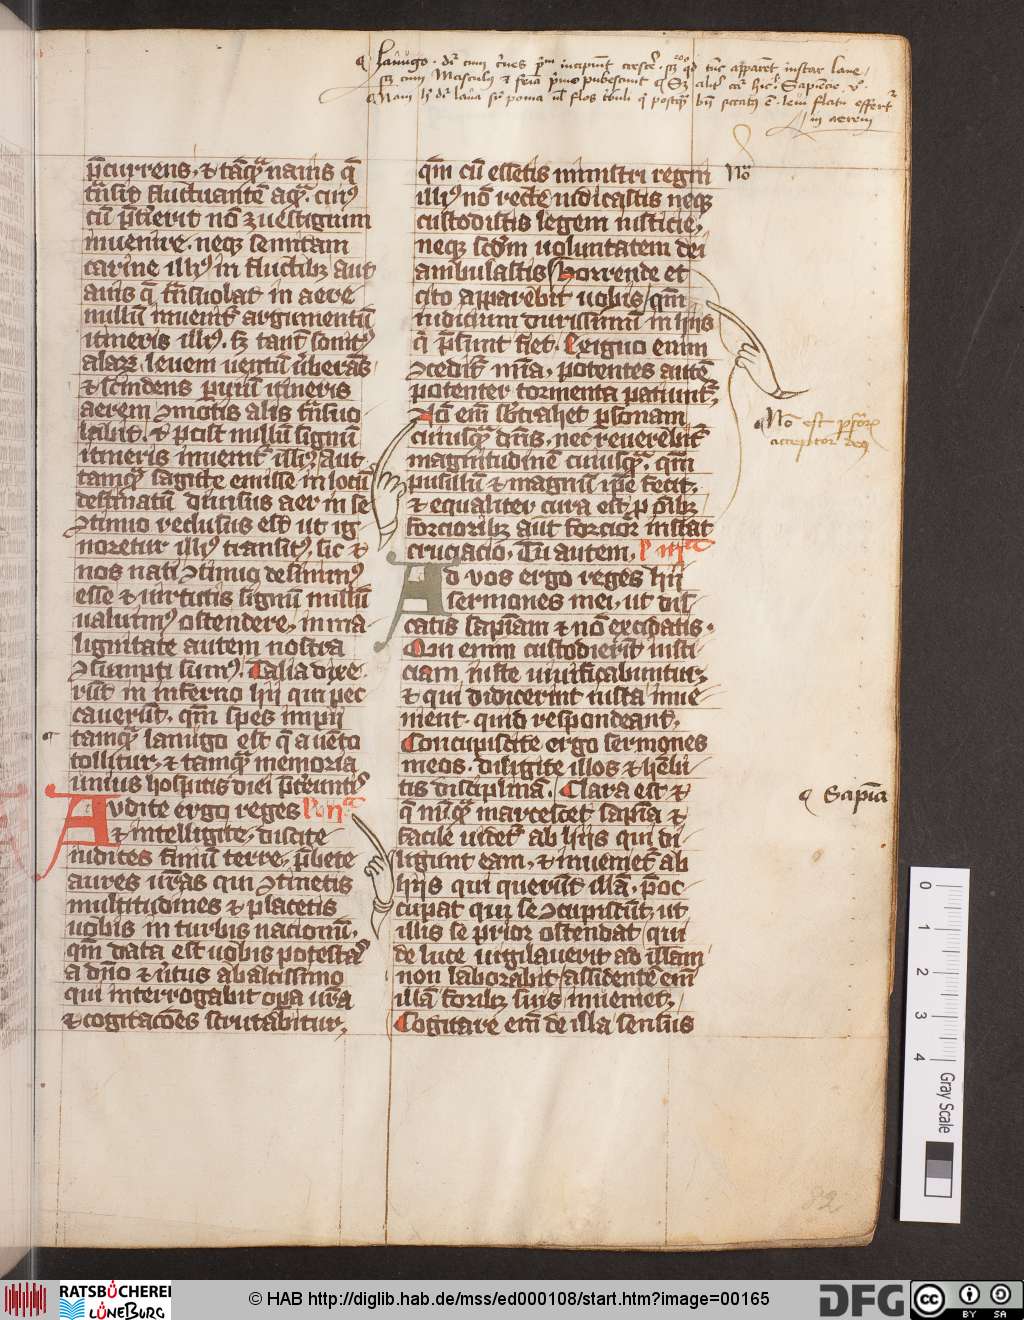 p̄currens, ⁊ tāqᷓ nauis q̄
t̄nsit fluctuantē aqᷓ. cuiꝰ
cū p̄t̾ierit nō ꝫ uestigium
inuenire. neqꝫ semitam
carine illiꝰ in fluctibꝫ aut
auis q̄ t̄nsuolat in aere
nullū inuenit̾ argumentū
itineris illiꝰ. sꝫ tant̄ sonitꝰ
alaꝝ. leuem uentū ūberās
⁊ scindens p̱ uiū itineris
aerem ꝯmotis alis t̄nsuo
labit. ⁊ post nullū signū
itineris inuenit̾ illiꝰ, aut
tamqᷓ sagitte emisse in locū
destinatū diuisus aer in se
ꝯtinuo reclusus est ut ig
noretur illiꝰ transitꝰ, sic ⁊
nos nati ꝯtinuo desinimꝰ
esse ⁊ uirtutis signū nullū
ualuimꝰ ostendere, in ma
lignitate autem nostra
ꝯsumpti sumꝰ. Talia dixe
rūt in inferno hij qui pec
cauerūt, qm̄ spes impij
tamqᷓ lanugo est q̄ a uēto
tollitur, ⁊ tamqᷓ memoria
unius hospitis diei p̄t̾euntꝭ
Audite ergo reges
⁊ intelligite, discite
iudices finiū terre, p̄bete
aures ur̄as qui ꝯtinetis
multitudines ⁊ placetis
uobis in turbis nacionū,
qm̄ data est uobis potestaˢ
a dn̄o ⁊ ūtus ab altissimo
qui interrogabit op̱a ur̄a
⁊ cogitacōes scrutabitur,
qm̄ cū essetis ministri regni
illiꝰ nō recte iudicastis neqꝫ
custodistis legem iusticie,
neqꝫ scd̄m uoluntatem dei
ambulastis Horrende et
cito apparebit uobis, qm̄
iudicium durissimū in hijs
q̄ p̄sunt fiet. Exiguo enim
ꝯcedit̾ mīa, potentes autē
potenter tormenta patiunt̾,
Nō em̄ sb̄trahet p̱sonam
cuiusqᷓ dn̄s, nec reuerebit̾
magnitudinē cuiusqᷓ. qm̄
pusillū ⁊ magnū ip̄e fecit,
⁊ equaliter cura est ꝑ oībꝫ
forcioribꝫ aūt forcior̾ instat
cruciacio, Tu autem,
Ad vos ergo reges hij
sermones mei, ut dis
catis sapīam ⁊ nō excidatis.
Qui enim custodierīt iusti
ciam iuste iustificabuntur,
⁊ qui didicerint iusta inue
nient. quid respondeant,
Concupiscite ergo sermones
meos. diligite illos ⁊ hēbi
tis disciplinā. Clara est ⁊
q̄ nūqᷓ marcescet sapīa ⁊
facile uidet̾ ab hijs qui di
ligunt eam, ⁊ inueniet̾ ab
hijs qui querūt illā, p̄oc
cupat qui se ꝯcupiscūt, ut
illis se prior ostendat qui
de luce uigilauerit ad illam
non laborabit, assidente em̄
illā foribꝫ suis inueniet,
Cogitare em̄ de illa sensus
Nō
Nō est p̱sonaꝝ
acceptor deus
Sapīa
82
0 1 2 3 4
Gray Scale
RATSBÜCHEREI
LÜNEBURG
© HAB http://diglib.hab.de/mss/ed000108/start.htm?image=00165
DFG
cc
BY SA